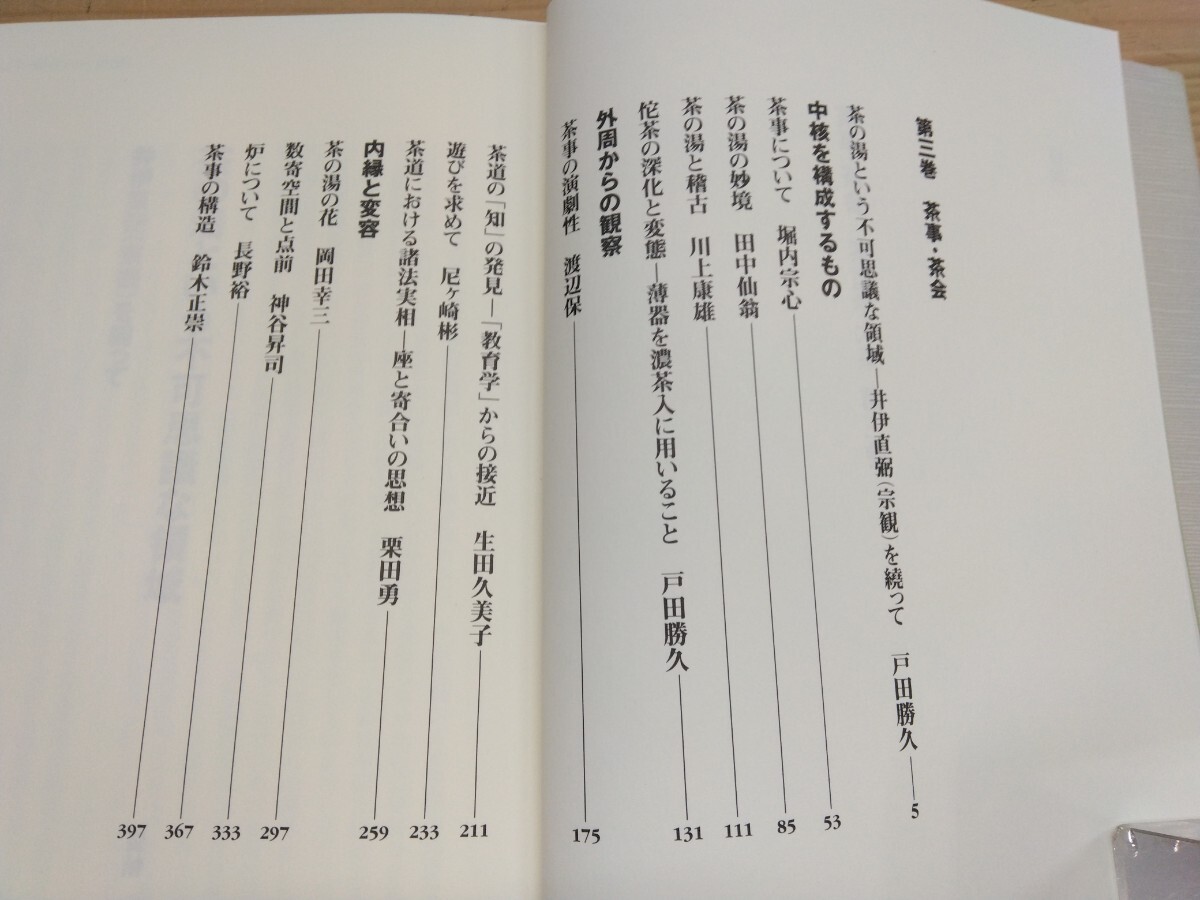 第三巻　茶事・茶会
茶の湯という不可思議な領域―井伊直弼(宗観)を繞って　戸田勝久 5
中核を構成するもの
茶事について　堀内宗心 53
茶の湯の妙境　田中仙翁 85
茶の湯と稽古　川上康雄 111
侘茶の深化と変態―薄器を濃茶入に用いること　戸田勝久 131
外周からの観察
茶事の演劇性　渡辺保 175
茶道の「知」の発見―「教育学」からの接近　生田久美子 211
遊びを求めて　尼ヶ崎彬 233
茶道における諸法実相―座と寄合いの思想　栗田勇 259
内縁と変容
茶の湯の花　岡田幸三 297
数寄空間と点前　神谷昇司 333
炉について　長野裕 367
茶事の構造　鈴木正崇 397